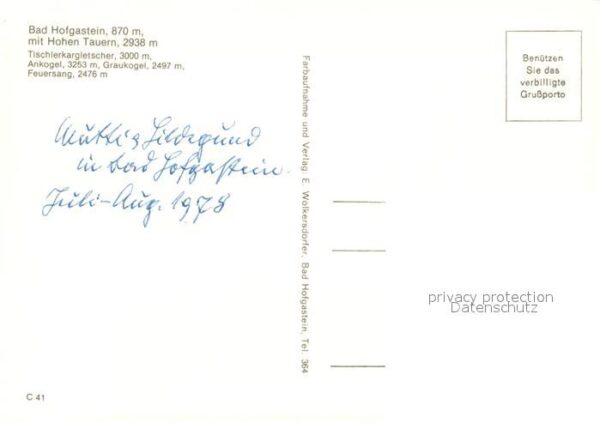 Bad Hofgastein, 870 m,
mit Hohen Tauern, 2938 m
Tischlerkargletscher, 3000 m,
Ankogel, 3253 m, Graukogel, 2497 m,
Feuersang, 2476 m
Mutti & Hildegund
in Bad Hofgastein.
Juli-Aug. 1978
Farbaufnahme und Verlag E. Wolkersdorfer, Bad Hofgastein, Tel. 364
Benützen
Sie das
verbilligte
Grußporto
privacy protection
Datenschutz
C 41